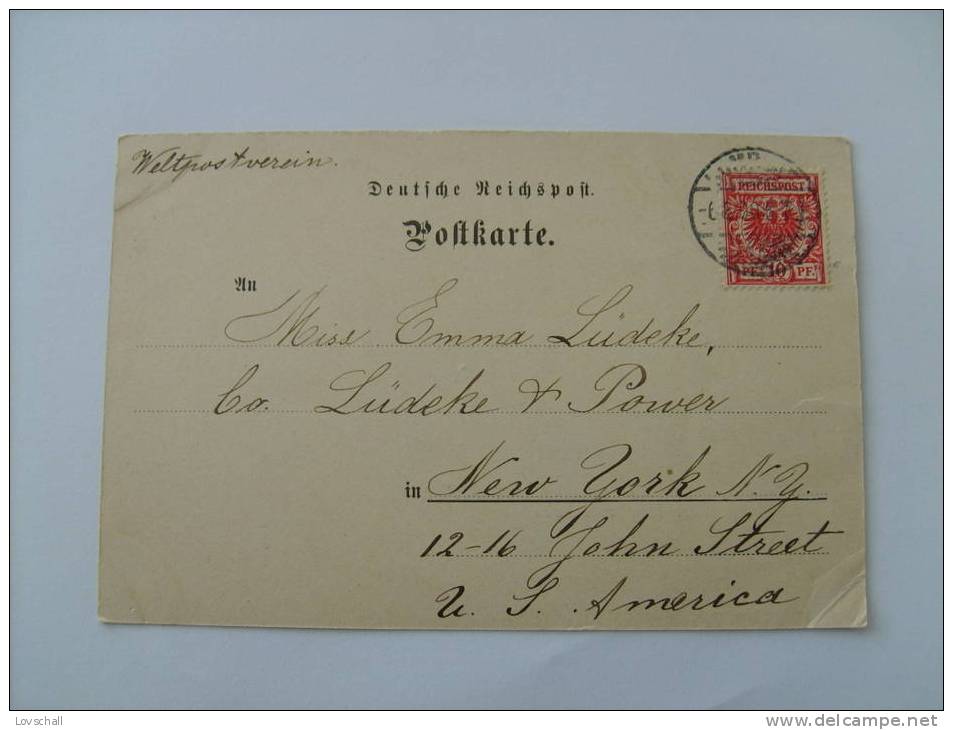 Weltpostverein.
Deutsche Reichspost.
Postkarte.
REICHSPOST
PF. 10 PF.
An
Miss Emma Lüdeke,
Co. Lüdeke & Power
in New York N.Y.
12-16 John Street
U. S. America
Lovschall
www.delcampe.net